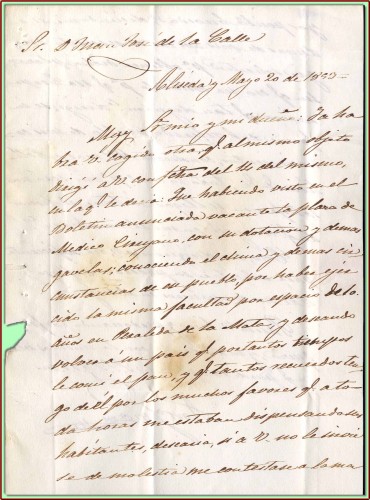 Sr. D. Man. José de la Calle
Aliseda y Mayo 20 de
Muy Sr mio y mi dueño: Ya ha
bra V. cogido otra q.e al mismo objeto
dirigí a V. con fecha del 14 del mismo,
en la q.e le decia: Que habiendo visto en el
Boletin anunciada vacante la plaza de
Medico Cirujano, con su dotacion y demas
gavelas; conociendo el clima y demas cir
cunstancias de ese pueblo, por haber ejer
cido la misma facultad por espacio de 10
años en Peraleda de la Mata; y deseando
volver á un pais q.e por tantos tiempos
le comí el pan, y q.e tantos recuerdos ten
go de él por los muchos favores q.e a to
das horas me estaban dispensando sus
habitantes, desearia, si á V. no le sirvie
se de molestia me contestase a la ma